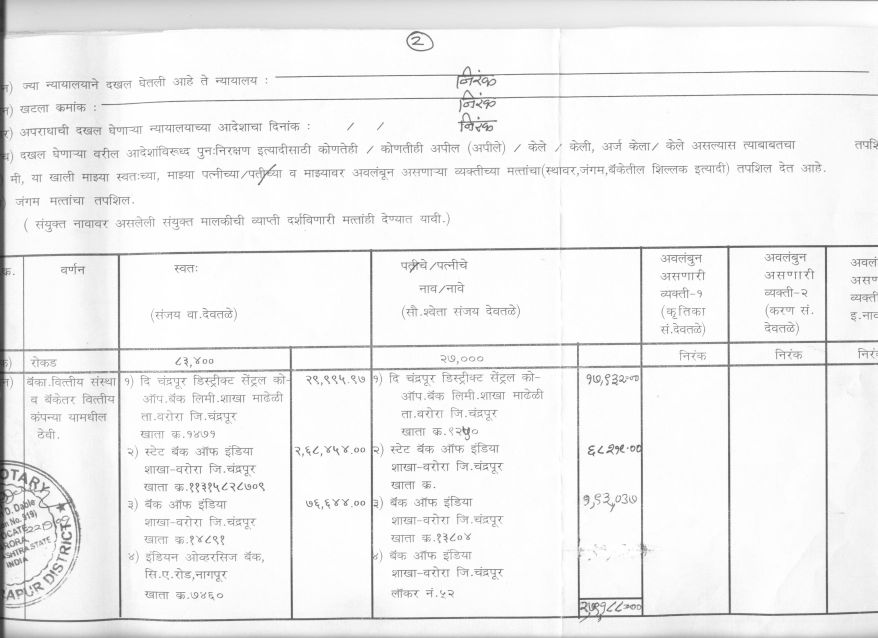 2
न) ज्या न्यायालयाने दखल घेतली आहे ते न्यायालय : निरंक
न) खटला कमांक : निरंक
र) अपराधाची दखल घेणाऱ्या न्यायालयाच्या आदेशाचा दिनांक : / / निरंक
ब) दखल घेणाऱ्या वरील आदेशांविरूध्द पुनःनिरक्षण इत्यादीसाठी कोणतेही / कोणतीही अपील (अपीले) / केले / केली, अर्ज केला/ केले असल्यास त्याबाबतचा तपशि
मी, या खाली माझ्या स्वतःच्या, माझ्या पत्नीच्या/पतीच्या व माझ्यावर अवलंबून असणाऱ्या व्यक्तीच्या मत्तांचा(स्थावर,जंगम,बॅंकेतील शिल्लक इत्यादी) तपशिल देत आहे.
) जंगम मत्तांचा तपशिल.
( संयुक्त नावावर असलेली संयुक्त मालकीची व्याप्ती दर्शविणारी मत्तांही देण्यात यावी.)
क. वर्णन स्वतः पतीचे/पत्नीचे अवलंबुन अवलंबुन अवलं
नाव/नावे असणारी असणारी असण
(संजय वा.देवतळे) (सौ.श्वेता संजय देवतळे) व्यक्ती-१ व्यक्ती-२ व्यक्ती
(कृतिका (करण सं. इ.नाव
सं.देवतळे) देवतळे)
क) रोकड ८३,४०० २७,००० निरंक निरंक निरं
न) बॅंका.वित्तीय संस्था १) दि चंद्रपूर डिस्ट्रीक्ट सेंट्रल को- २९,९९५.९७ १) दि चंद्रपूर डिस्ट्रीक्ट सेंट्रल को- १७,९३२=००
व बॅंकेतर वित्तीय ऑप.बॅंक लिमी.शाखा माढेळी ऑप.बॅंक लिमी.शाखा माढेळी
कंपन्या यामधील ता.वरोरा जि.चंद्रपूर ता.वरोरा जि.चंद्रपूर
ठेवी. खाता क्र.१४७१ खाता क्र.९२५०
२) स्टेट बॅंक ऑफ इंडिया २,६८,४५४.०० २) स्टेट बॅंक ऑफ इंडिया ६८२१९.००
शाखा-वरोरा जि.चंद्रपूर शाखा-वरोरा जि.चंद्रपूर
खाता क्र.११३१५८२८७०९ खाता क्र.
३) बॅंक ऑफ इंडिया ७६,६४४.०० ३) बॅंक ऑफ इंडिया १,९३,०३७
शाखा-वरोरा जि.चंद्रपूर शाखा-वरोरा जि.चंद्रपूर
खाता क्र.१४८९१ खाता क्र.१३८०४
४) इंडियन ओव्हरसिज बॅंक, ४) बॅंक ऑफ इंडिया
सि.ए.रोड,नागपूर शाखा-वरोरा जि.चंद्रपूर
खाता क्र.७४६० लॉकर नं.५२
२७९१८८=००
OTARY
D. Dable
INDIA
APUR DISTRICT